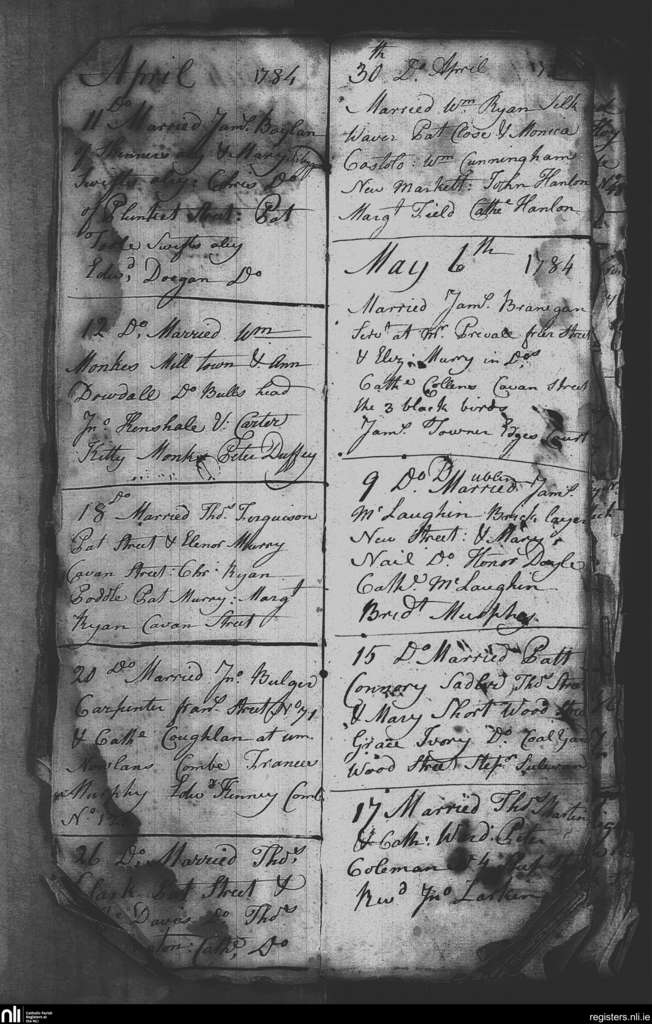 April 1784
11 Do Married Jams. Boylan
Skinners aley & Mary
Swifts aley: Chris Do
of Plunket Street: Pat
Toole Swifts aley
Edwd. Doegan Do
12 Do. Married Wm
Monkes Mill town & Ann
Dowdall Do Bulls head
Jno. Henshale V: Carter
Kitty Monks Peter Duffey
18 Do Married Thos. Forguison
Pat Street & Elenor Murry
Cavan Street: Chr: Ryan
Poddle Pat Murry: Margt
Ryan Cavan Street
20 Do Married Jno. Bulger
Carpenter frans. Street No 71
& Cathe Coughlan at wm.
Nowlans Combe Frances
Murphy Edwd Kenney Comb
No 1
26 Do. Married Thos.
Clark Pat Street &
Davis Do Thos
Cathe. Do
30th Do. April
Married Wm Ryan Silk
Waver Pat Close & Monica
Costolo: Wm Cunningham
New Markett: John Hanlon
Margt Field Cathe Hanlon
May 6th 1784
Married Jams. Branegan
Servt at Mr. Prevale frier Street
& Eliz: Murry in Dos
Cathe Collens Cavan Street
the 3 black birds
Jams. Towner Court
9 Do. Dublin
Married Jams.
McLaughin Brick layer
New Street: & Mary
Nail Do Honor Doyle
Cathe. McLaughin
Bridt Murphy
15 Do Married Patt
Conrory Sadler Thos. Stre
& Mary Short Wood Stre
Grace Ivory Do. Coal
Wood Street Stepn
17 Married Thos. Martin
& Cath: Ward: Peter
Coleman
Revd Jno Larken
nli
Catholic Parish
Registers at
the NLI
registers.nli.ie